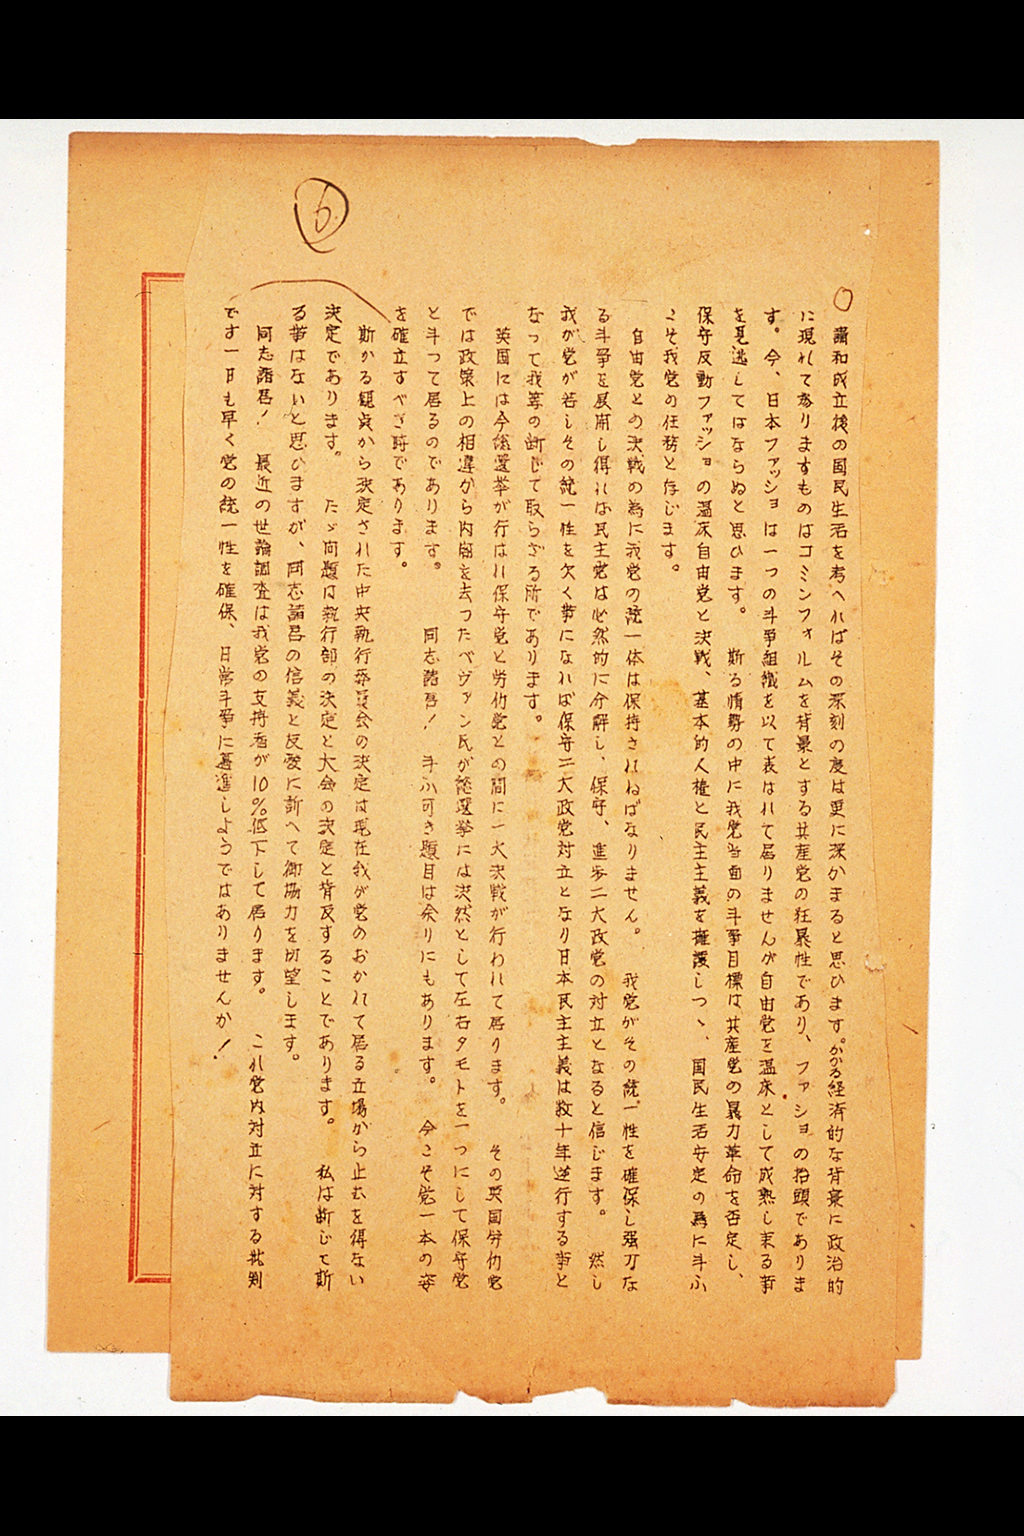 6
○
講和成立後の国民生活を考へればその深刻の度は更に深かまると思ひます。かかる経済的な背景に政治的
に現れて参りますものはコミンフォルムを背景とする共産党の狂暴性であり、ファショの抬頭でありま
す。今、日本ファッショは一つの斗争組織を以て表はれて居りませんが自由党を温床として成熟し来る事
を見逃してはならぬと思ひます。 斯る情勢の中に我党当面の斗争目標は共産党の暴力革命を否定し、
保守反動ファッショの温床自由党と決戦、基本的人権と民主主義を擁護しつゝ、国民生活安定の為に斗ふ
こそ我党の任務と存じます。
自由党との決戦の為に我党の統一体は保持されねばなりません。 我党がその統一性を確保し強力な
る斗争を展開し得れば民主党は必然的に分解し、保守、進歩二大政党の対立となると信じます。 然し
我が党が若しその統一性を欠く事になれば保守二大政党対立となり日本民主主義は数十年逆行する事と
なって我等の断じて取らざる所であります。
英国には今総選挙が行はれ保守党と労仂党との間に一大決戦が行われて居ります。 その英国労仂党
では政策上の相違から内閣を去ったベヴァン氏が総選挙には決然として左右タモトを一つにして保守党
と斗って居るのであります。 同志諸君! 斗ふ可き題目は余りにもあります。 今こそ党一本の姿
を確立すべき時であります。
斯かる観点から決定された中央執行委員会の決定は現在我が党のおかれて居る立場から止むを得ない
決定であります。 たゞ問題は執行部の決定と大会の決定と背反することであります。 私は断じて斯
る事はないと思ひますが、同志諸君の信義と友愛に訴へて御協力を切望します。
同志諸君! 最近の世論調査は我党の支持者が10%低下して居ります。 これ党内対立に対する批判
です一日も早く党の統一性を確保、日常斗争に驀進しようではありませんか!